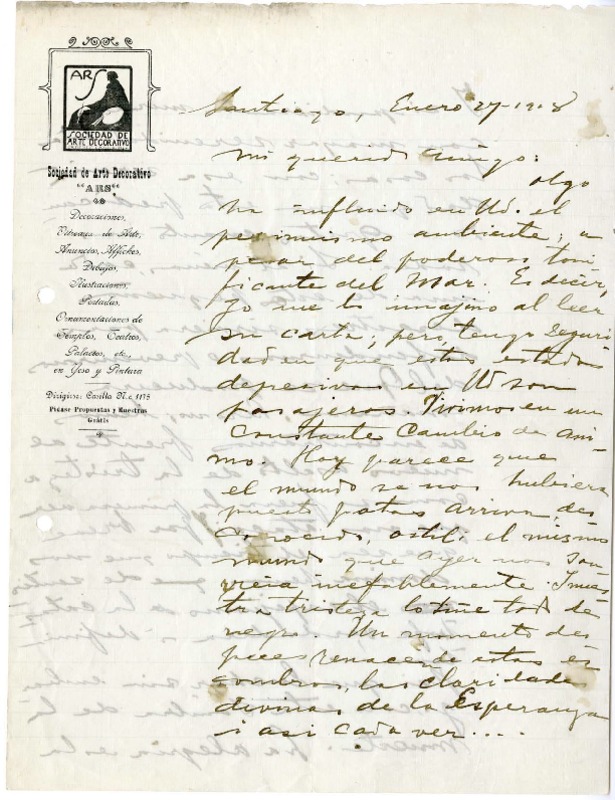 ARS
SOCIEDAD DE
ARTE DECORATIVO
Sociedad de Arte Decorativo
"ARS"
Decoraciones,
Vitreaux de Arte,
Anuncios, Affiches,
Dibujos,
Ilustraciones,
Portadas,
Ornamentaciones de
Templos, Teatros,
Palacios, etc,
en Yeso y Pintura
Dirigirse: Casilla N.o 1175
Pídase Propuestas y Muestras
Gratis
Santiago, Enero 27-1918
Mi querido amigo:
Algo
ha influido en Ud. el
pesimismo ambiente, a
pesar del poderoso toni
ficante del Mar. Es decir,
yo me lo imajino al leer
su carta; pero, tengo seguri
dad en que estos estados
depresivos en Ud son
pasajeros. Vivimos en un
constante cambio de áni
mo. Hoy parece que
el mundo se nos hubiera
puesto patas arriva, des
conocido, ostil, el mismo
mundo que ayer nos son
reía inefablemente. I nues
tra tristeza lo tiñe todo de
negro. Un momento des
pues renacen de estos es
combros, las claridades
divinas de la Esperanza
i asi cada vez....